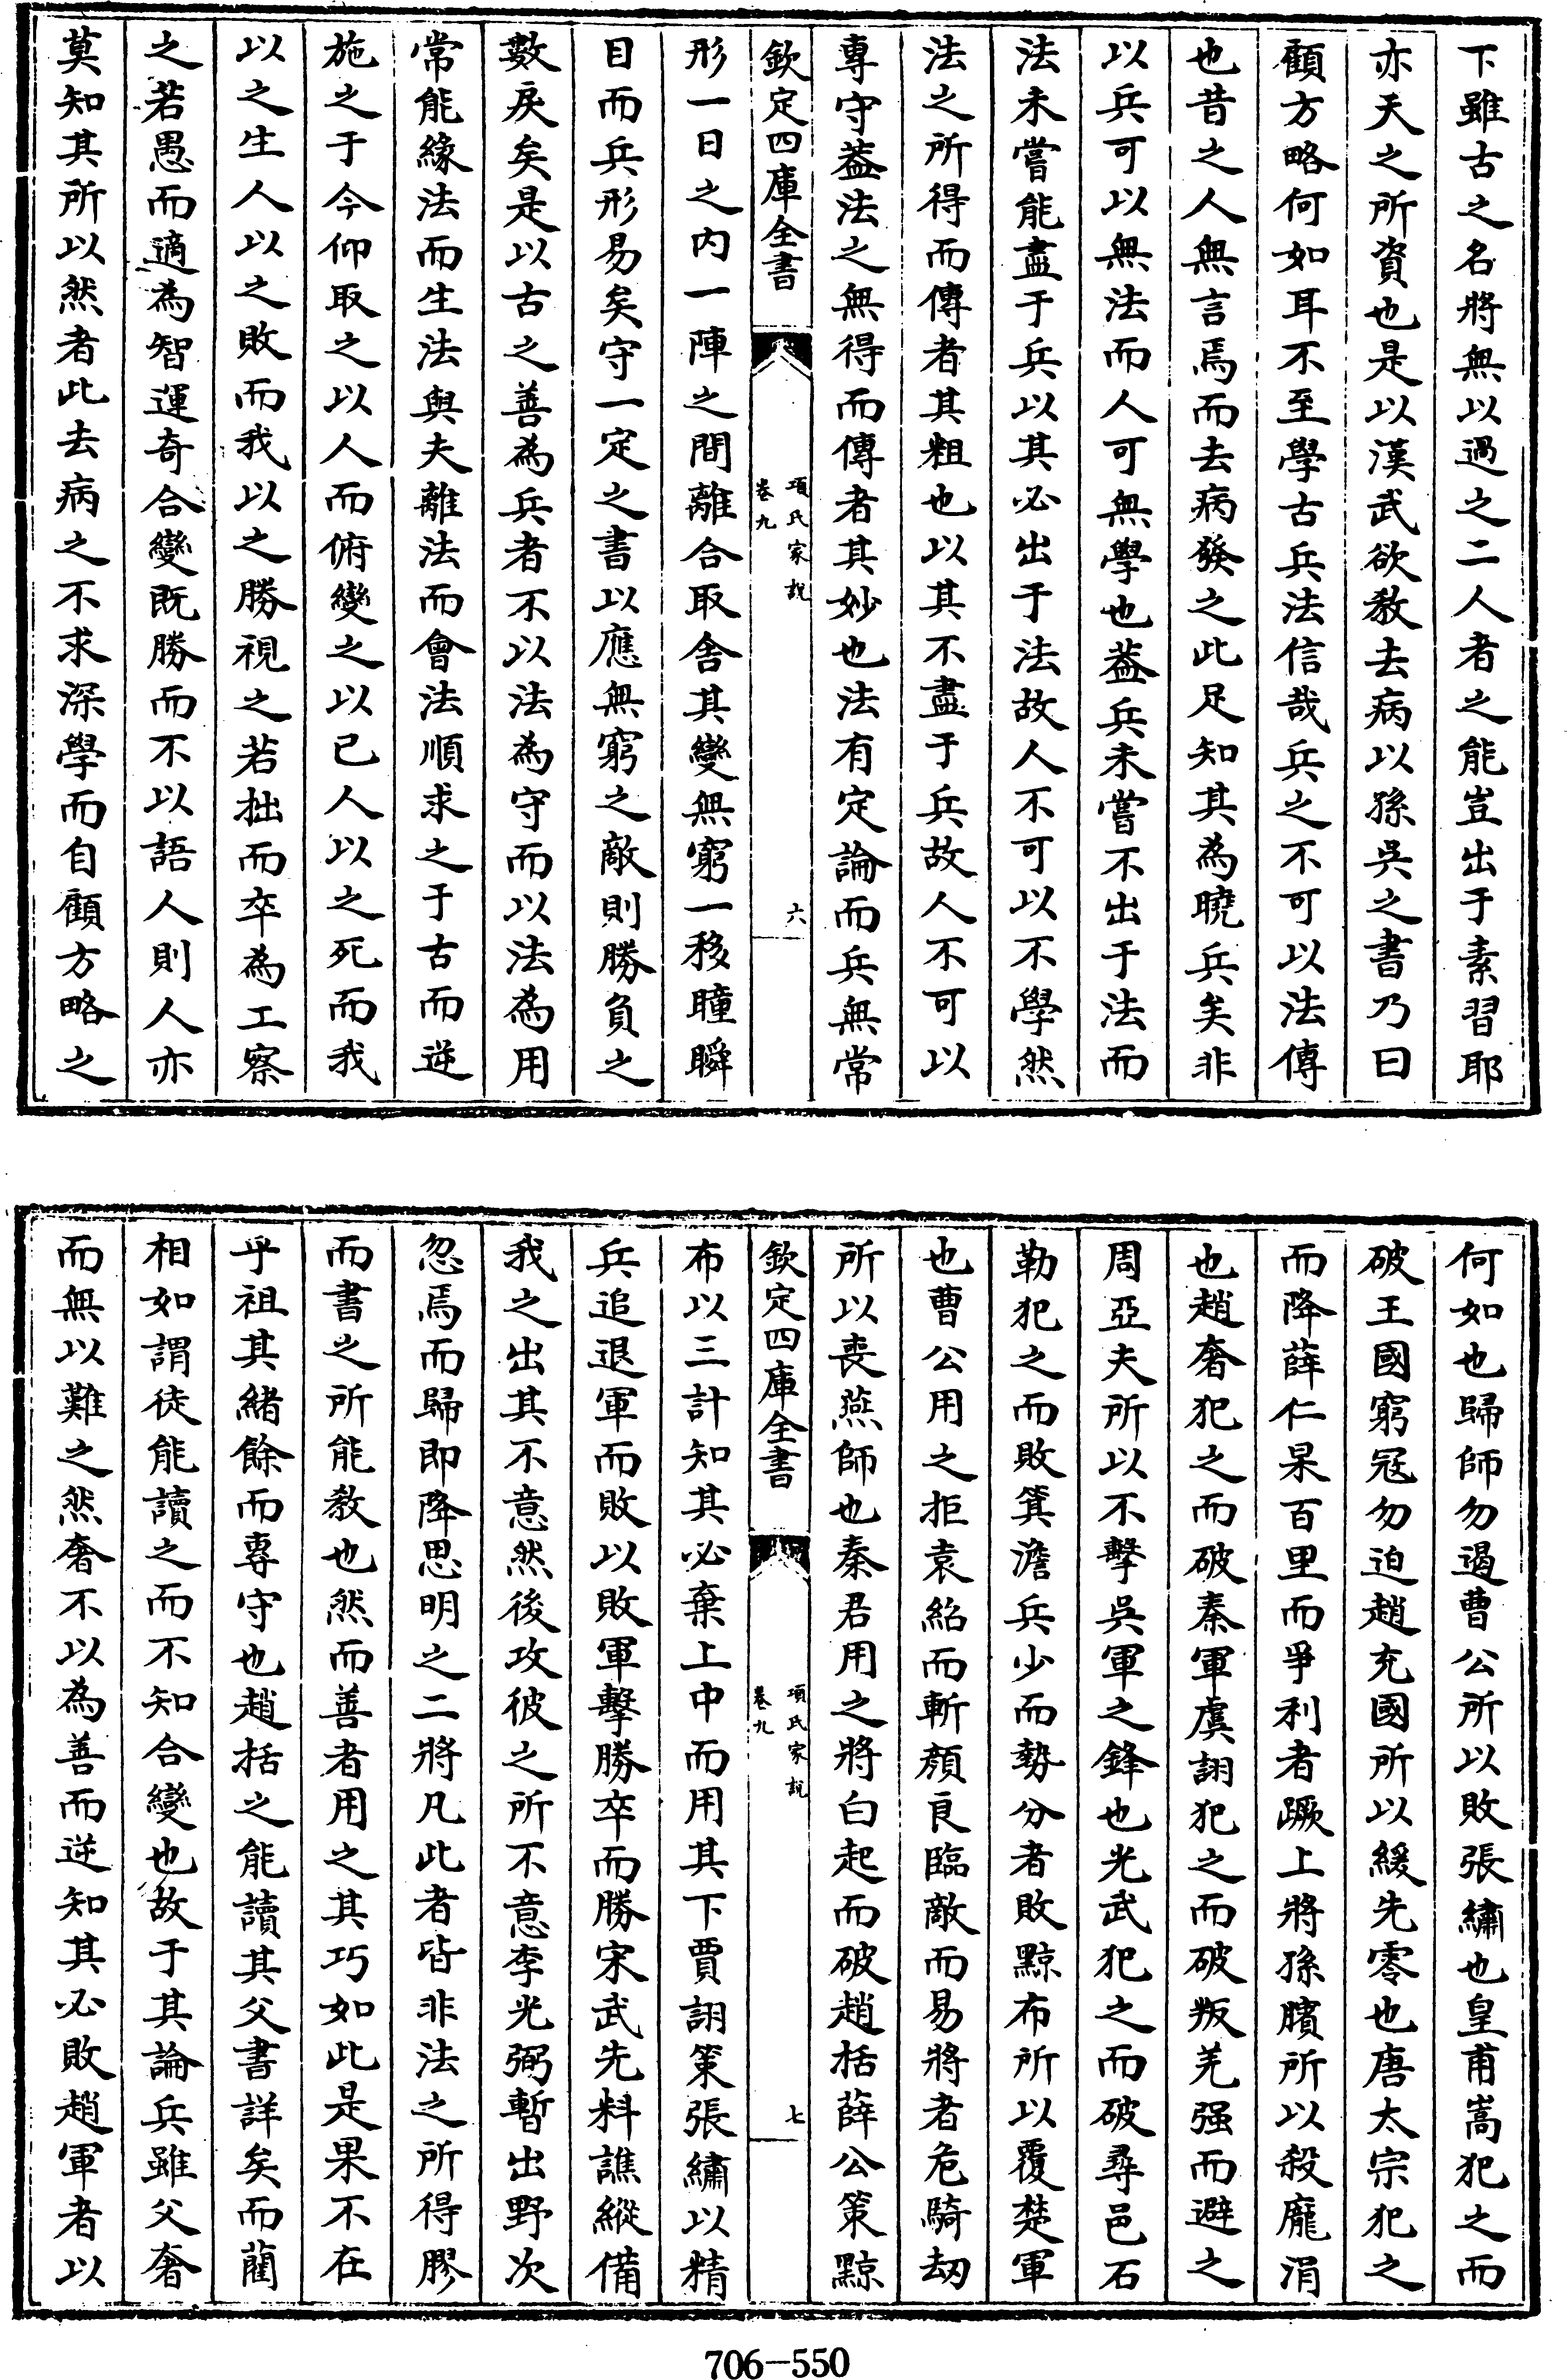 下雖古之名將無以過之二人者之能豈出于素習耶
亦天之所資也是以漢武欲教去病以孫吳之書乃曰
顧方略何如耳不至學古兵法信哉兵之不可以法傳
也昔之人無言焉而去病發之此足知其為曉兵矣非
以兵可以無法而人可無學也葢兵未嘗不出于法而
法未嘗能盡于兵以其必出于法故人不可以不學然
法之所得而傳者其粗也以其不盡于兵故人不可以
專守葢法之無得而傳者其妙也法有定論而兵無常
欽定四庫全書
項氏家說
卷九
六
形一日之内一陣之間離合取舍其變無窮一移瞳瞬
目而兵形易矣守一定之書以應無窮之敵則勝負之
數戾矣是以古之善為兵者不以法為守而以法為用
常能緣法而生法與夫離法而會法順求之于古而逆
施之于今仰取之以人而俯變之以己人以之死而我
以之生人以之敗而我以之勝視之若拙而卒為工察
之若愚而適為智運奇合變既勝而不以語人則人亦
莫知其所以然者此去病之不求深學而自顧方略之
何如也歸師勿遏曹公所以敗張繡也皇甫嵩犯之而
破王國窮冦勿迫趙充國所以緩先零也唐太宗犯之
而降薛仁杲百里而爭利者蹶上將孫臏所以殺龐涓
也趙奢犯之而破秦軍虞詡犯之而破叛羌强而避之
周亞夫所以不擊吳軍之鋒也光武犯之而破尋邑石
勒犯之而敗箕澹兵少而勢分者敗黥布所以覆楚軍
也曹公用之拒袁紹而斬顔良臨敵而易將者危騎劫
所以喪燕師也秦君用之將白起而破趙括薛公策黥
欽定四庫全書
項氏家說
卷九
七
布以三計知其必棄上中而用其下賈詡策張繡以精
兵追退軍而敗以敗軍擊勝卒而勝宋武先料譙縱備
我之出其不意然後攻彼之所不意李光弼暫出野次
忽焉而歸即降思明之二將凡此者皆非法之所得膠
而書之所能教也然而善者用之其巧如此是果不在
乎祖其緒餘而專守也趙括之能讀其父書詳矣而藺
相如謂徒能讀之而不知合變也故于其論兵雖父奢
而無以難之然奢不以為善而逆知其必敗趙軍者以
706-550